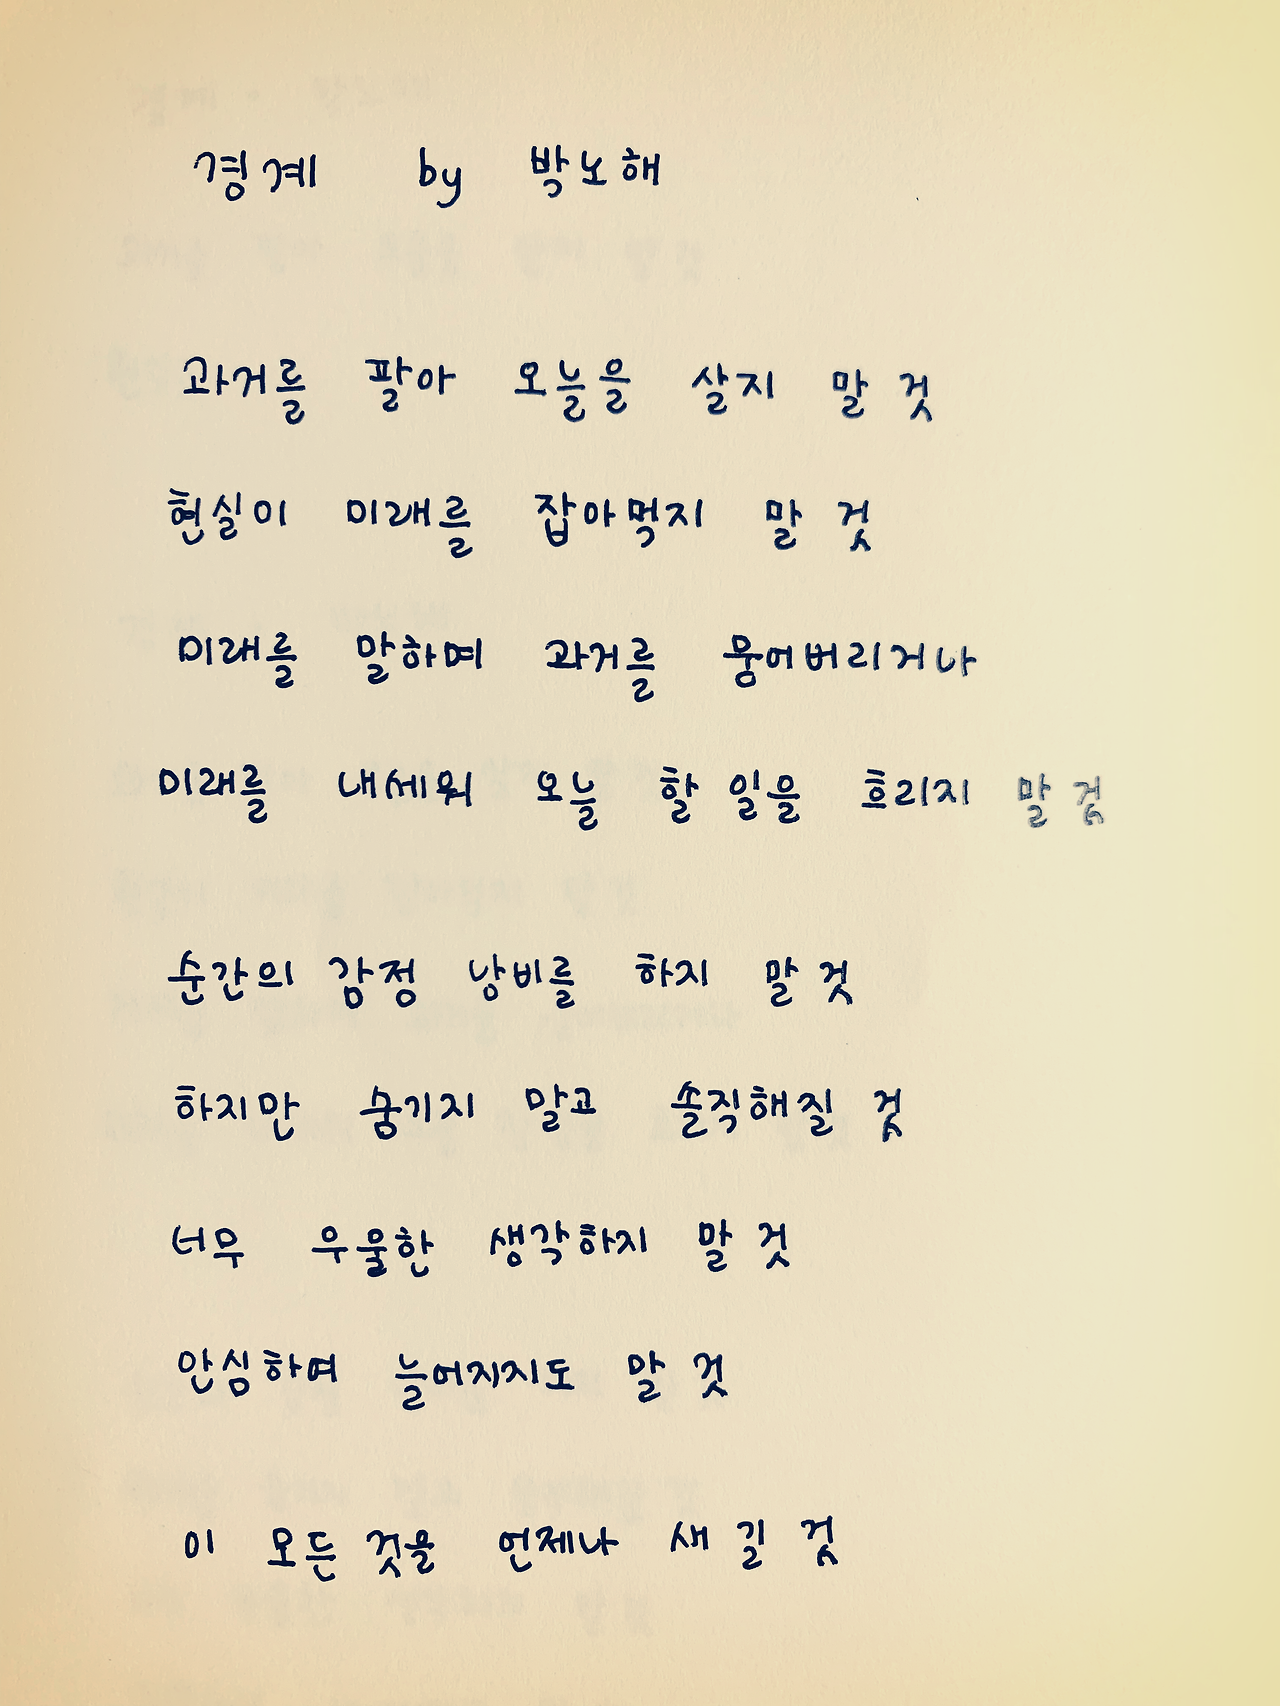 경계 by 박노해
과거를 팔아 오늘을 살지 말 것
현실이 미래를 잡아먹지 말 것
미래를 말하며 과거를 뭉어버리거나
미래를 내세워 오늘 할 일을 흐리지 말 것
순간의 감정 낭비를 하지 말 것
하지만 숨기지 말고 솔직해질 것
너무 우울한 생각하지 말 것
안심하며 늘어지지도 말 것
이 모든 것을 언제나 새길 것